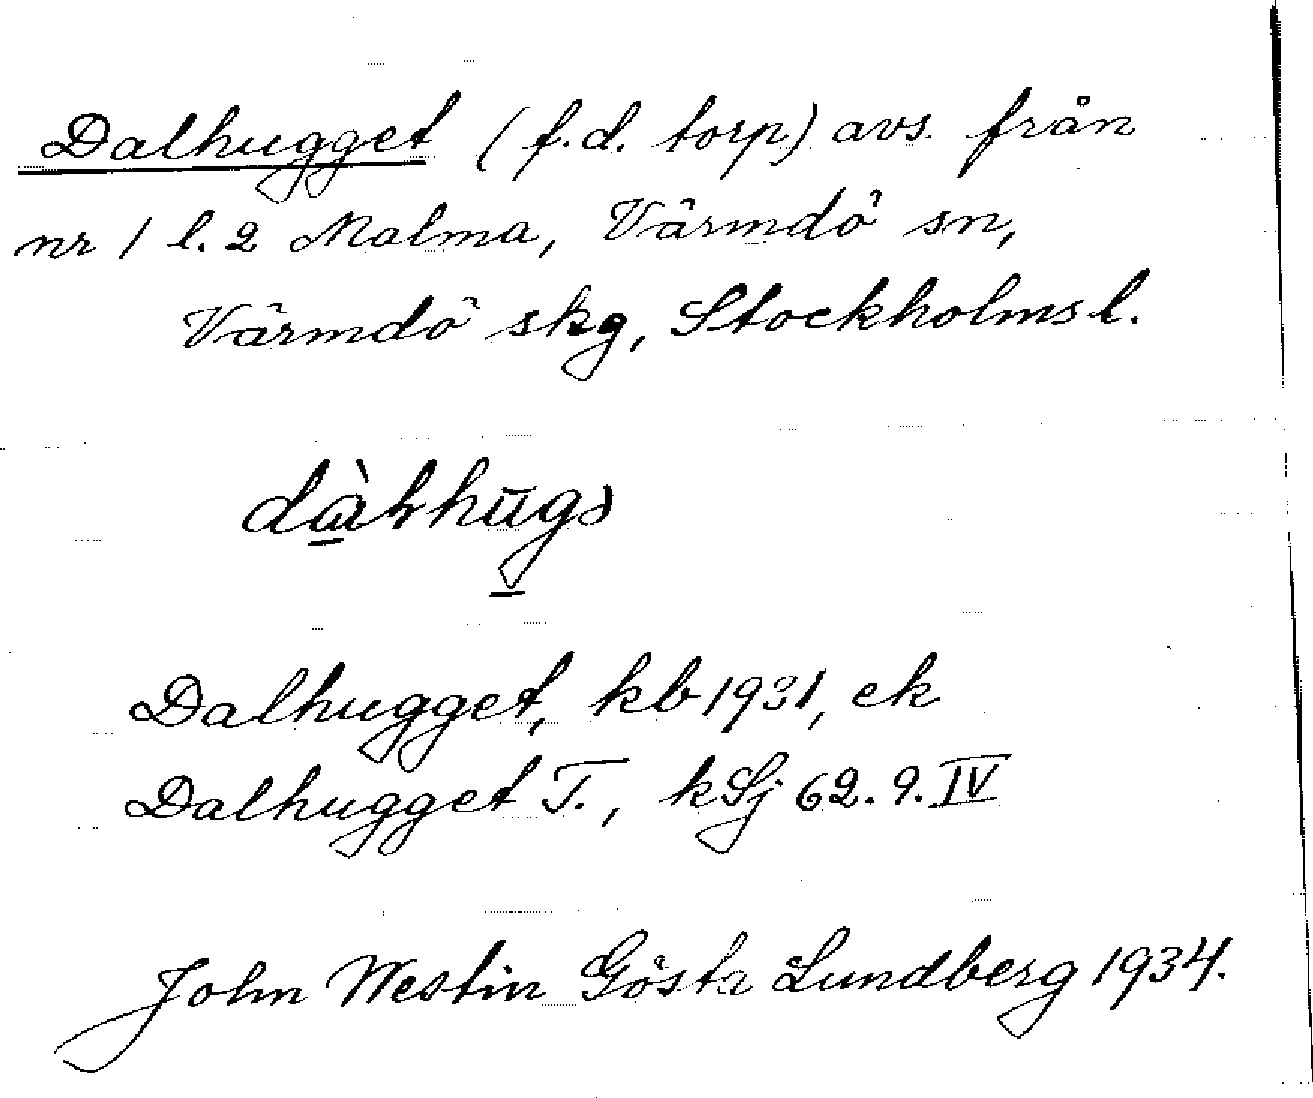 Dalhugget (f.d. torp) avs. från
nr 1 l. 2 Malma, Värmdö sn,
Värmdö skg, Stockholms l.
Dalhugget, kb 1931, ek
Dalhugget T., kSj 62. 9. IV
John Westin Gösta Lundberg 1934.